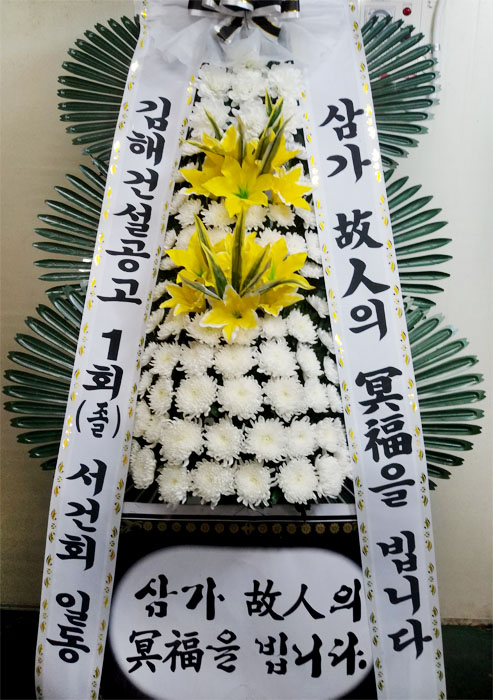 김해건설공고 1회(졸) 서건회 일동
삼가 故人의 冥福을 빕니다
삼가 故人의
冥福을 빕니다.